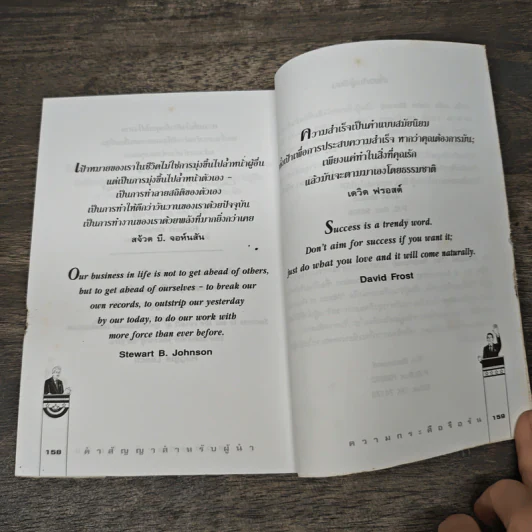 เป้าหมายของเราในชีวิตไม่ใช่การมุ่งขึ้นไปล้ำหน้าผู้อื่น
แต่เป็นการมุ่งขึ้นไปล้ำหน้าตัวเอง –
เป็นการทำลายสถิติของตัวเอง
เป็นการทำให้ดีกว่าวันวานของเราด้วยปัจจุบัน
เป็นการทำงานของเราด้วยพลังที่มากยิ่งกว่าเคย
สจ๊วต บี. จอห์นสัน
Our business in life is not to get ahead of others,
but to get ahead of ourselves – to break our
own records, to outstrip our yesterday
by our today, to do our work with
more force than ever before.
Stewart B. Johnson
158
คำสัญญาสำหรับผู้นำ
ความสำเร็จเป็นคำแบบสมัยนิยม
เพื่อการประสบความสำเร็จ หากว่าคุณต้องการมัน;
เพียงแค่ทำในสิ่งที่คุณรัก
แล้วมันจะตามมาเองโดยธรรมชาติ
เดวิด ฟรอสต์
Success is a trendy word.
Don't aim for success if you want it;
just do what you love and it will come naturally.
David Frost
ความกระตือรือร้น
159